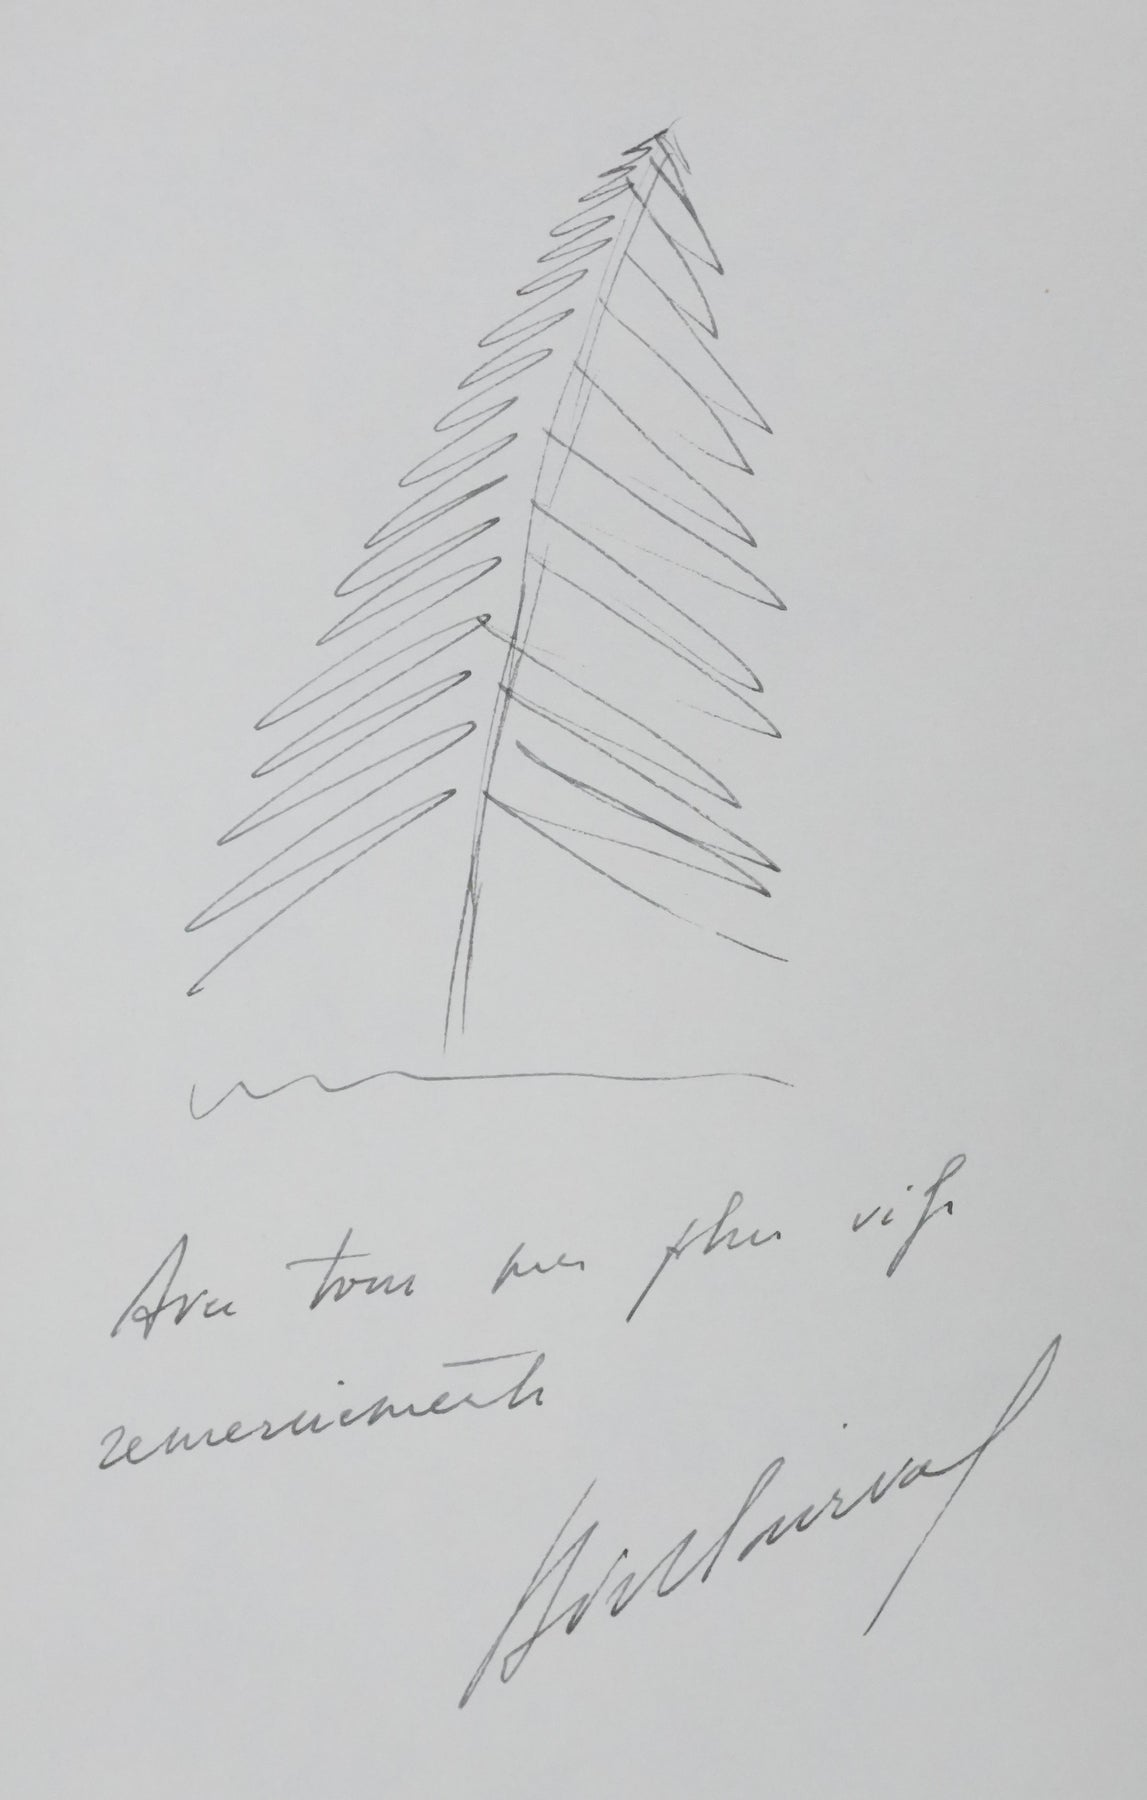 Avec tous mes plus vifs
remerciements